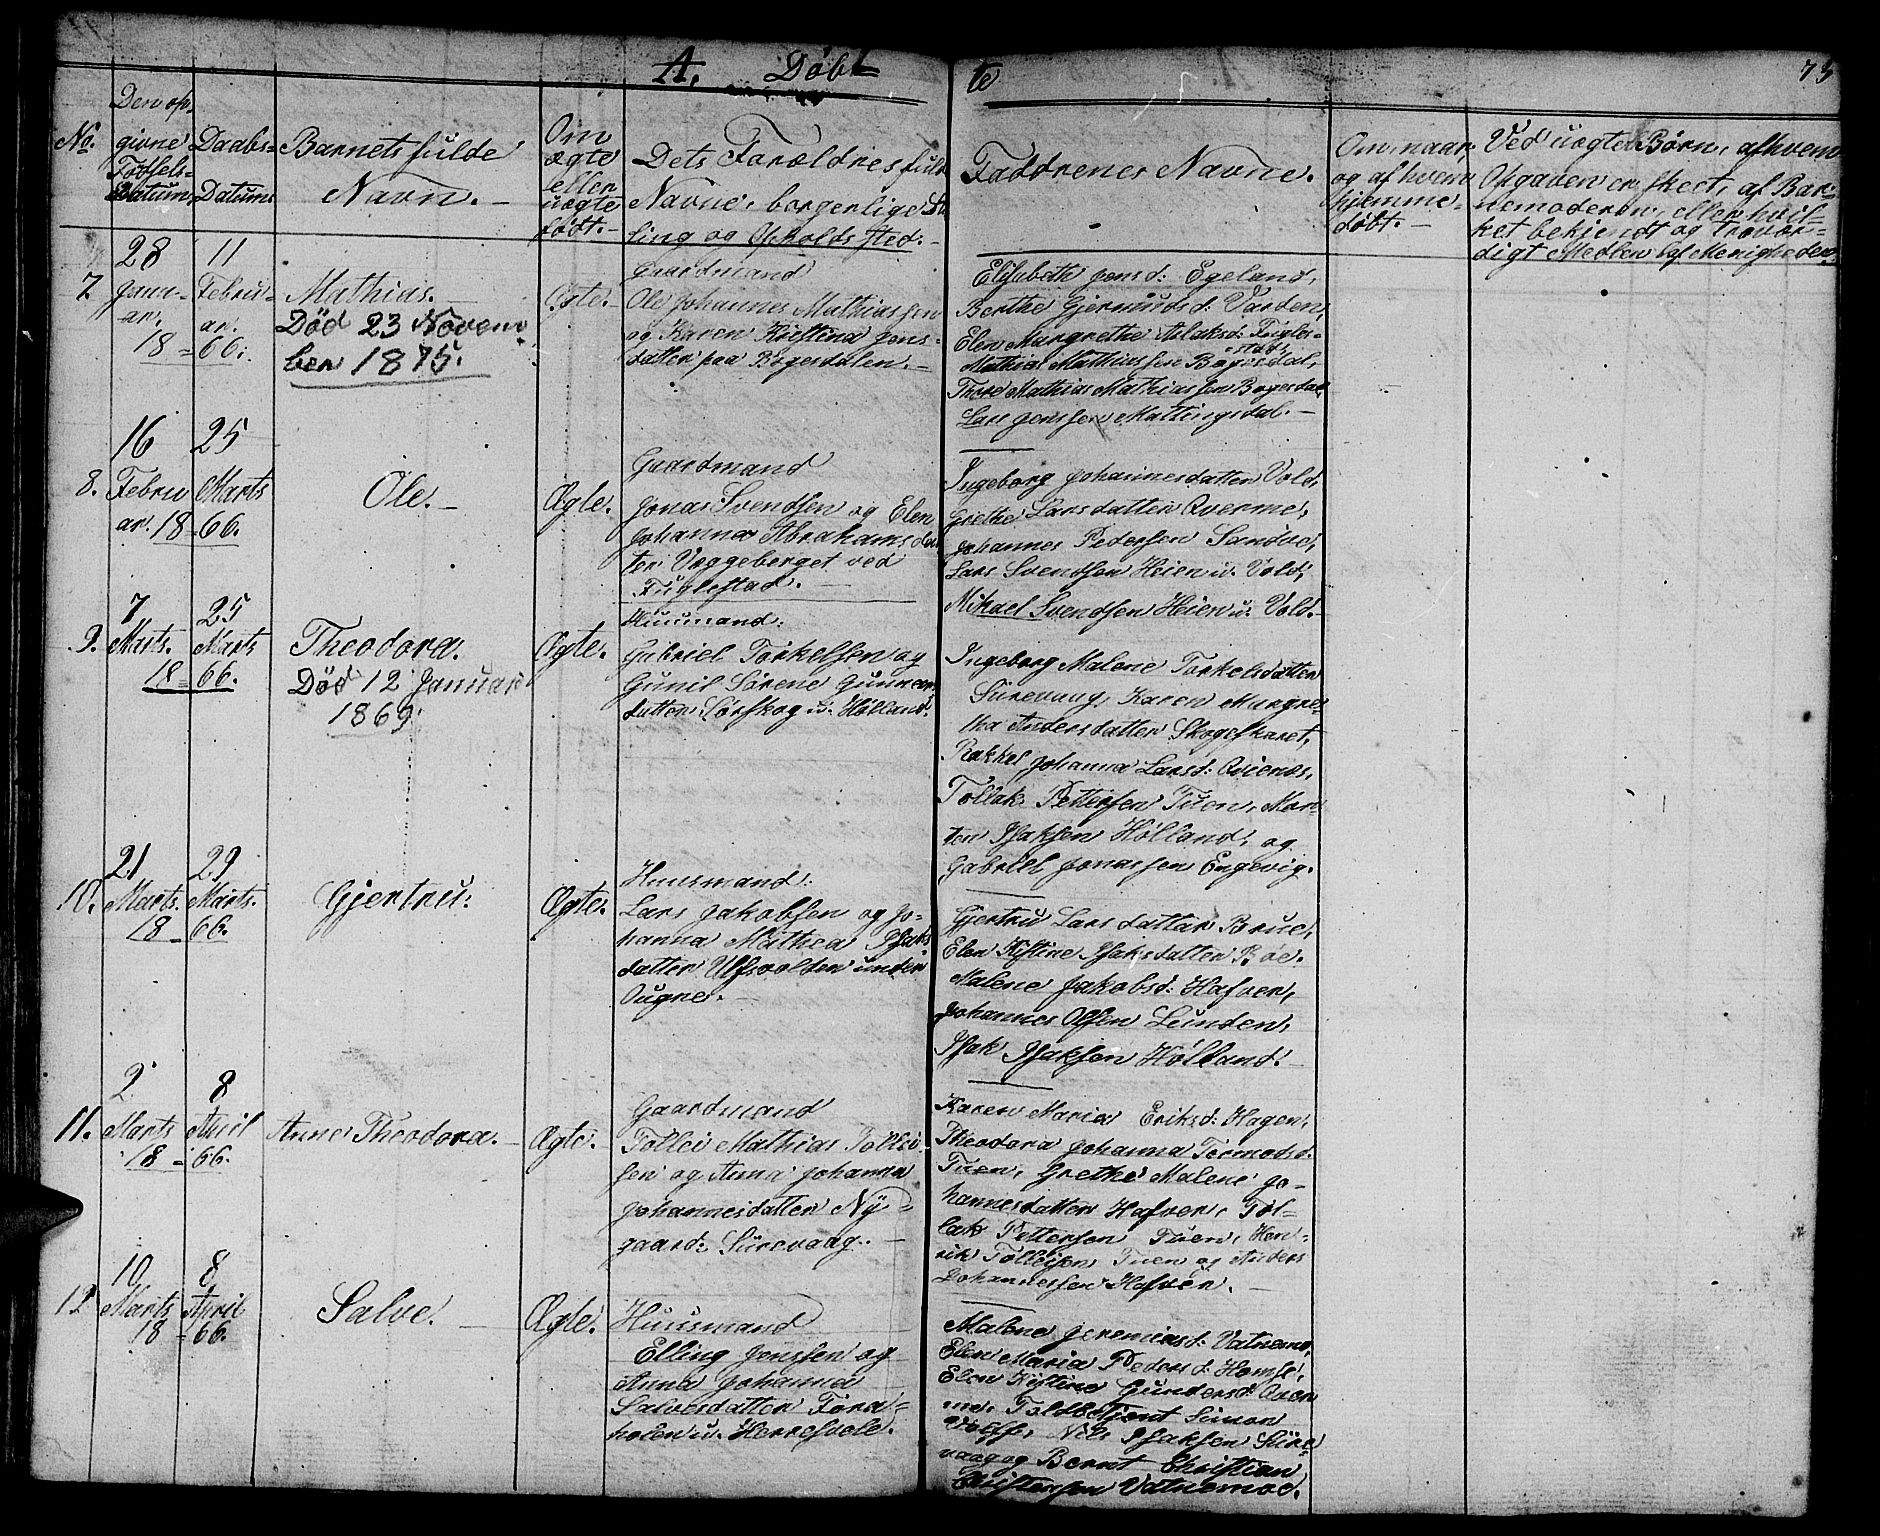 A. Døbte
75
No.
Den opgivne Fødsels-Datum.
Daabs-Datum.
Barnets fulde Navn.
Om ægte eller uægte født.
Dets Forældres fulde Navne, borgerlige Stilling og Opholdssted.
Faddrenes Navne.
Om, naar, og af hvem hjemme-døbt.
Ved uægte Børn, af hvem Opgaven er skeet, af Barnemoderen, eller hvilket bekjendt og troværdigt Medlem af Menigheden.
7.
28 Januar. 1866.
11 Februar.
Mathias.
Død 23 Novem
ber 1875.
Ægte.
Gaardmand
Ole Johannes Mathiassen
og Karen Kristina Jons-
datter paa Bøgesdalen.
Elisabeth Jensd: Egeland,
Berthe Gjermunds d: Varden,
Elen Margrethe Aslaksd: Fugle-
stad,
Mathias Mathiassen Bøgesdal,
Thore Mathias Mathiassen Bøgesdal
Lars Jenssen Mattingsdal.
8.
16 Februar. 1866.
25 Marts
Ole.
Ægte.
Gaardmand
Jonas Svendsen og Elen
Johanna Abrahamsdat
ter Vaggeberget ved
Fuglestad.
Ingeborg Johannesdatter Vold,
Grethe Larsdatter Qverme,
Johannes Pedersen Sandve,
Lars Svendsen Heien u. Vold,
Mikael Svendsen Heien u. Vold.
9.
7 Marts. 1866.
25 Marts
Theodora.
Død 12 Januari
1869.
Ægte.
Huusmand:
Gabriel Torkelsen og
Gunil Sørene Gunnars
datter Sørskog u: Hølland.
Ingeborg Malene Torkelsdatter
Sürevaag, Karen Margre-
tha Andersdatter Skogeskaret,
Rakkel Johanna Larsd: Qvienes,
Tollak Pettersen Tuen, Mor
ten Isaksen Hølland, og
Gabriel Jonassen Engevig.
10.
21 Marts. 1866.
29 Marts.
Gjertru.
Ægte.
Huusmand:
Lars Jakobsen og Jo-
hanna Mathea Isaks
datter Ulfsvolden under
Ougne.
Gjertru Larsdatter Brue,
Elen Kistine Isaksdatter Bøe.
Malene Jakobsd: Hafver,
Johannes Olsen Lunden,
Isak Isaksen Hølland.
11.
2. Marts 1866.
8 April
Anne Theodora.
Ægte.
Gaardmand
Tollei Mathias Tollei
sen og Anna Johanna
Johannesdatter Ny-
gaard: Sürevaag.
Karen Maria Eriksd: Hagen,
Theodora Johanna Tormodsd:
Tuen, Grethe Malene Jo-
hannesdatter Hafver, Tol-
lak Pettersen Tuen, Hen-
rik Tolleifsen Tuen og Anders
Johannessen Hafver.
12
10 Marts 1866.
8 April
Salve.
Ægte.
Huusmand
Elling Jenssen og
Anna Johanna
Salvesdatter Fora-
holen u. Herresvele.
Malene Jeremiasd: Vatnemo,
Elen Maria Pedersd: Homse,
Elen Kistine Gundersd: Qver
me. Toldbetjent Simon
Wolff, Nils Isaksen Süre
vaag og Bernt Christian
Christensen Vatnemoe.